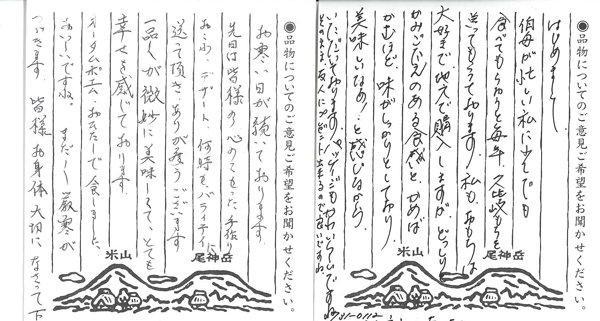 ●品物についてのご意見ご希望をお聞かせください。
はじめまして
伯母が忙しい私に少しでも
食べてもらおうと毎年、久比岐もちを
送ってもらっております。私も、おもちは
大好きで、地元で購入しますが、どっしりと
かみごたえのある食感と、かめば
かむほど、味がしっかりとしており
美味しいなあ！と感じながら
いただいております！パッケージもかわいいですね
尾神岳
米山
●品物についてのご意見ご希望をお聞かせください。
お寒い日が続いております。
先日は皆様の心のこもった手作り
おこわ、デザート、何時もバラエティに
送って頂きありが度うございます
一品一品が微妙に美味しくて、とても
幸せを感じております。
オータムポエム、おひたしで食しました。
おいしいですね。まだまだ厳寒が
つづきます。皆様お身体大切になさって下
尾神岳
米山